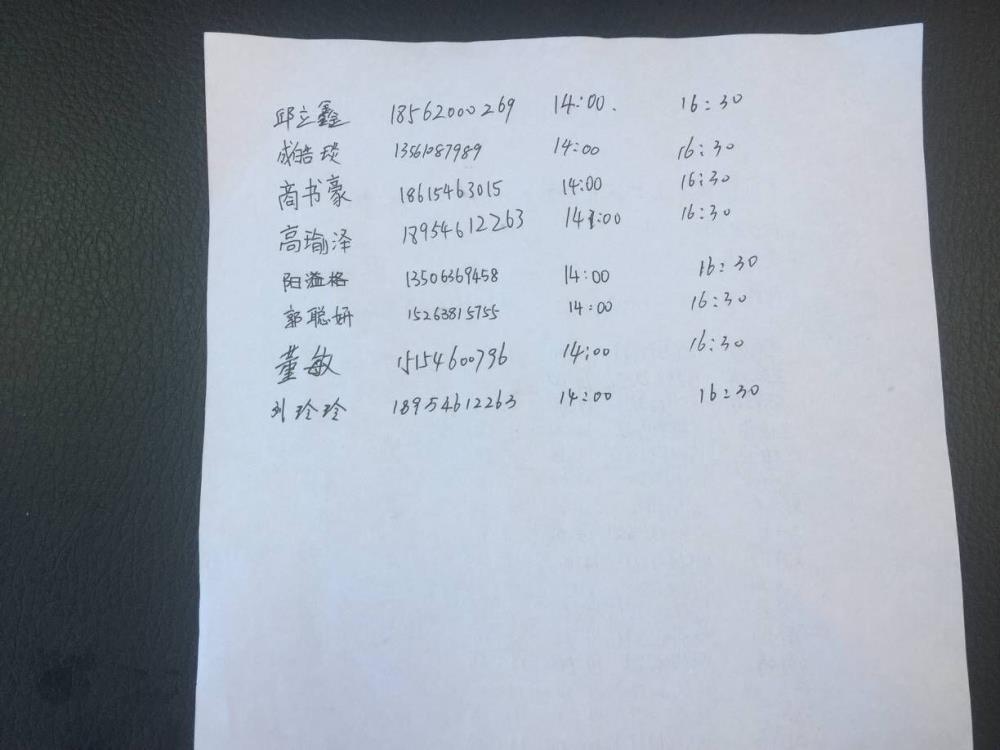 邱立鑫 18562000269 14:00. 16:30
成皓琰 13561087989 14:00 16:30
商书豪 18615463015 14:00 16:30
高瑜泽 18954612263 14:00 16:30
阳溢格 13506369458 14:00 16:30
郭聪妍 15263815755 14:00 16:30
董敏 15154600796 14:00 16:30
刘玲玲 18954612263 14:00 16:30